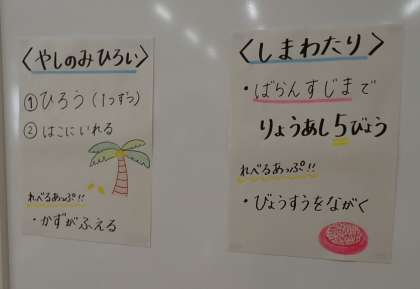 〈やしのみひろい〉
① ひろう (1つずつ)
② はこにいれる
れべるあっぷ!!
・かずがふえる
〈しまわたり〉
・ばらんすじまで
りょうあし5びょう
れべるあっぷ!!
・びょうすうをながく